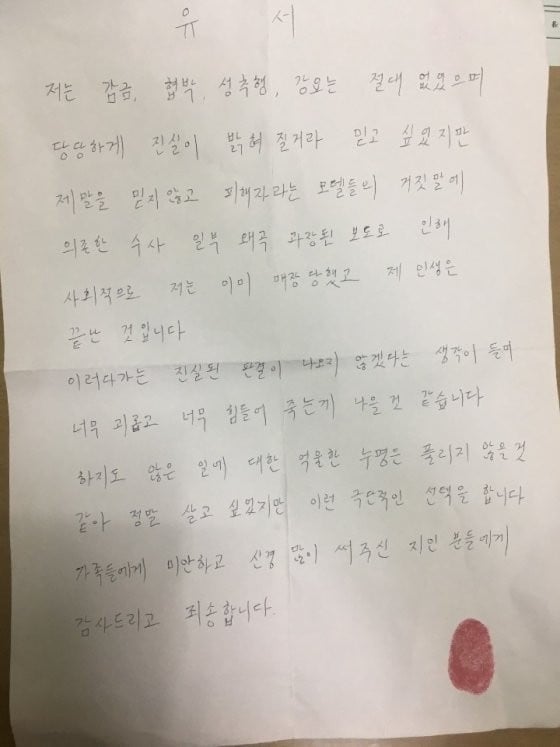 유 서
저는 감금, 협박, 성추행, 강요는 절대 없었으며
당당하게 진실이 밝혀 질거라 믿고 싶었지만
제 말을 믿지 않고 피해자라는 모델들의 거짓말에
의존한 수사 일부 왜곡 과장된 보도로 인해
사회적으로 저는 이미 매장 당했고 제 인생은
끝난 것입니다
이러다가는 진실된 판결이 나오지 않겠다는 생각이 들며
너무 괴롭고 너무 힘들어 죽는게 나을 것 같습니다
하지도 않은 일에 대한 억울한 누명은 풀리지 않을 것
같아 정말 살고 싶었지만 이런 극단적인 선택을 합니다
가족들에게 미안하고 신경 많이 써 주신 지인 분들에게
감사드리고 죄송합니다.